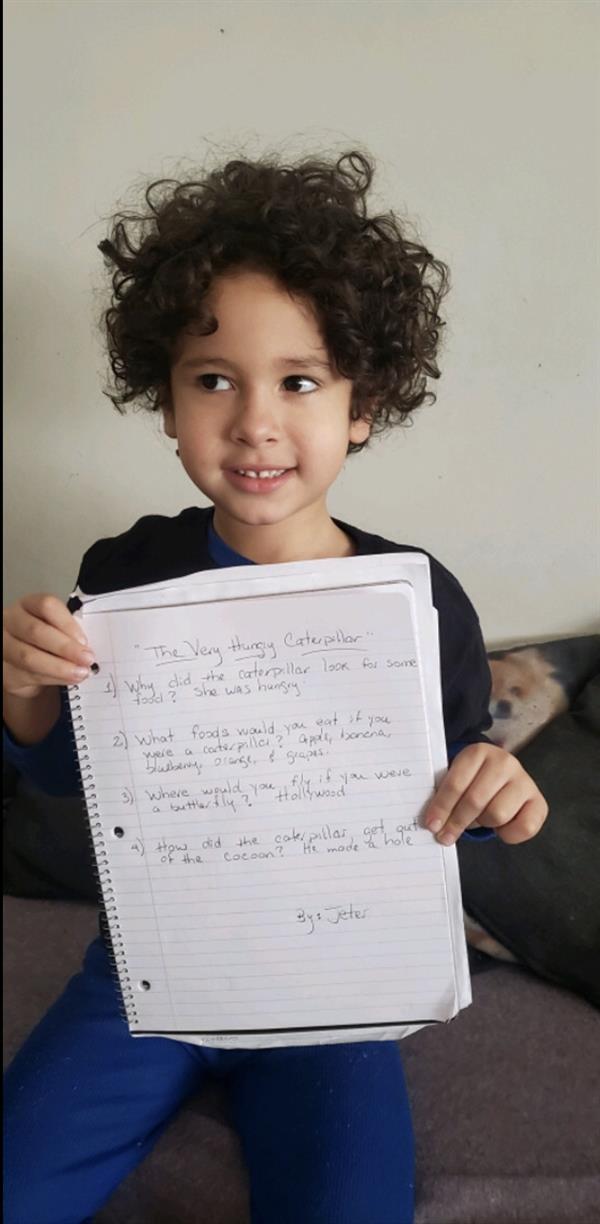 "The Very Hungry Caterpillar"
1) Why did the caterpillar look for some
food? She was hungry.
2) What foods would you eat if you
were a caterpillar? apple, banana,
blueberry, orange, & grapes.
3) Where would you fly if you were
a butterfly? Hollywood
4) How did the caterpillar get out
of the cocoon? He made a hole
By: Jeter